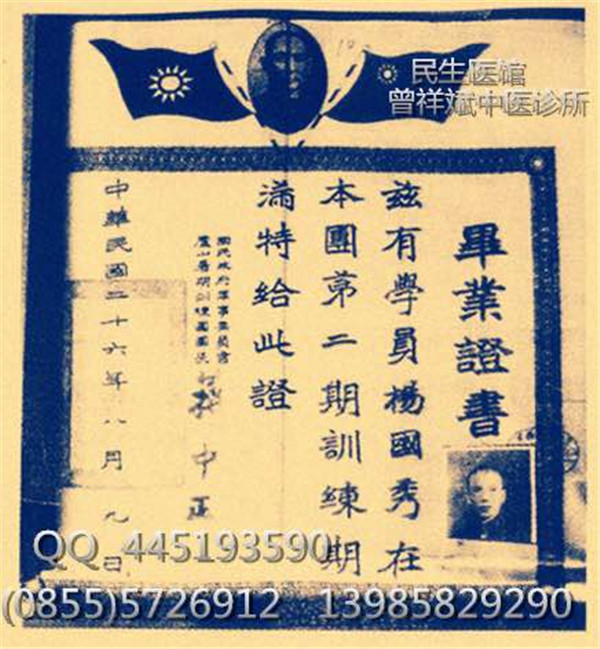 民生医馆
曾祥斌中医诊所
畢業證書
兹有學員楊國秀在
本團第二期訓練期
滿特給此證
國民政府軍事委員會
廬山暑期訓練團團長
蔣中正
中華民國二十六年八月九日
QQ 445193590
(0855)5726912 13985829290